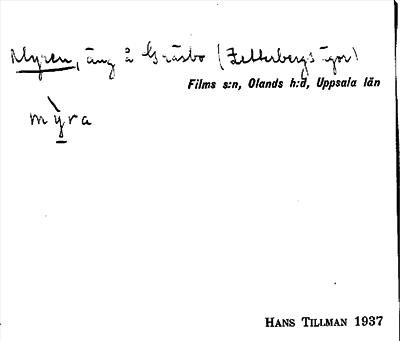 Myren, äng å Gräsbo (Zetterbergs ägor)
Films s:n, Olands h:d, Uppsala län
mỳra
HANS TILLMAN 1937